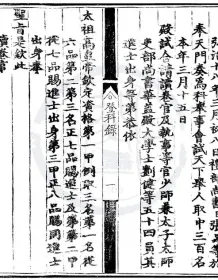 奉天門奏為科舉事會試天下舉人取中三百名
本年三月十五日
殿試合請讀卷官及執事等官少師兼太子太師
吏部尚書華蓋殿大學士劉健等五十四員其
進士出身等第恭依
登科錄
一
太祖高皇帝欽定資格第一甲例取三名第一名從
六品第二第三名正七品賜進士及第第二甲從
七品賜進士出身第三甲正八品賜同進士
出身奉
聖旨是欽此